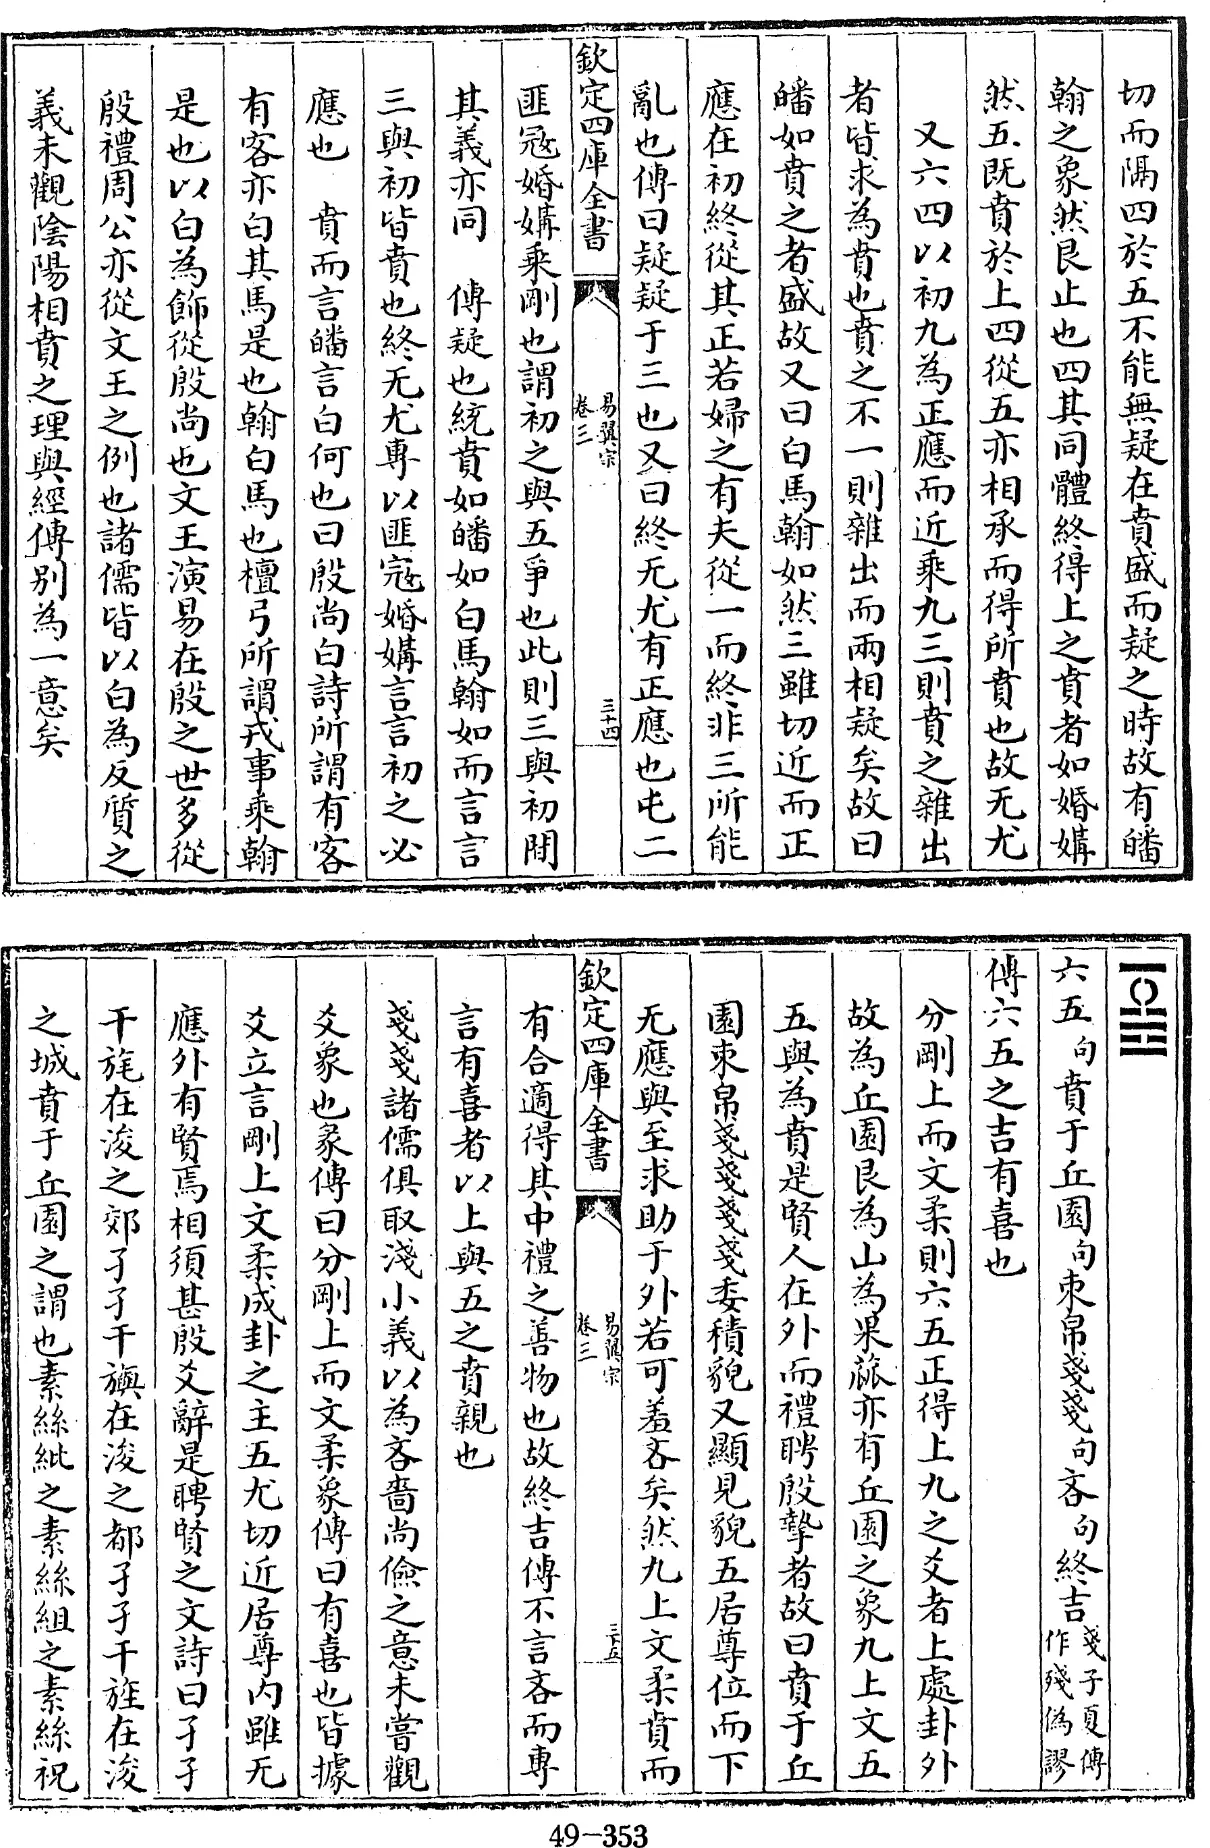 切而隔四於五不能無疑在賁盛而疑之時故有皤
翰之象然艮止也四其同體終得上之賁者如婚媾
然五既賁於上四從五亦相承而得所賁也故无尤
又六四以初九為正應而近乘九三則賁之雜出
者皆求為賁也賁之不一則雜出而兩相疑矣故曰
皤如賁之者盛故又曰白馬翰如然三雖切近而正
應在初終從其正若婦之有夫從一而終非三所能
亂也傳曰疑疑于三也又曰終无尤有正應也屯二
欽定四庫全書
易翼宗
卷三
三十四
匪寇婚媾乘剛也謂初之與五爭也此則三與初鬬
其義亦同 傳疑也統賁如皤如白馬翰如而言言
三與初皆賁也終无尤專以匪寇婚媾言言初之必
應也 賁而言皤言白何也曰殷尚白詩所謂有客
有客亦白其馬是也翰白馬也檀弓所謂戎事乘翰
是也以白為飾從殷尚也文王演易在殷之世多從
殷禮周公亦從文王之例也諸儒皆以白為反質之
義未觀陰陽相賁之理與經傳别為一意矣
六五句賁于丘園句束帛戔戔句吝句終吉戔子夏傳作殘偽謬
傳六五之吉有喜也
分剛上而文柔則六五正得上九之爻者上處卦外
故為丘園艮為山為果蓏亦有丘園之象九上文五
五與為賁是賢人在外而禮聘殷摯者故曰賁于丘
園束帛戔戔戔戔委積貌又顯見貌五居尊位而下
无應與至求助于外若可羞吝矣然九上文柔賁而
欽定四庫全書
易翼宗
卷三
三十五
有合適得其中禮之善物也故終吉傳不言吝而專
言有喜者以上與五之賁親也
戔戔諸儒俱取淺小義以為吝嗇尚儉之意未嘗觀
爻象也彖傳曰分剛上而文柔象傳曰有喜也皆據
爻立言剛上文柔成卦之主五尤切近居尊内雖无
應外有賢焉相須甚殷爻辭是聘賢之文詩曰孑孑
干旄在浚之郊孑孑干旟在浚之都孑孑干旌在浚
之城賁于丘園之謂也素絲紕之素絲組之素絲祝
49-353